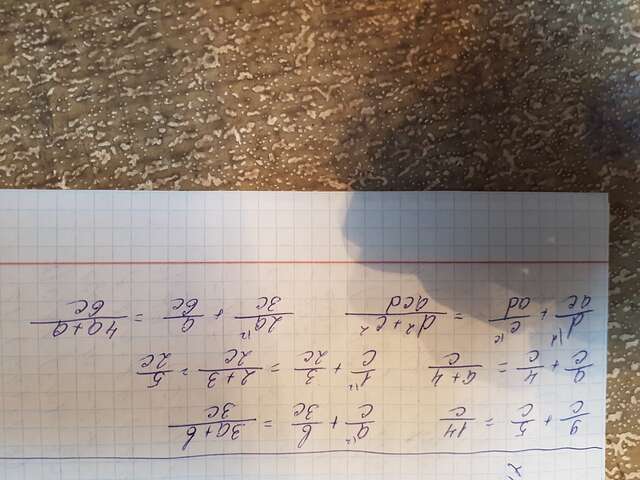 9/c + 5/c = 14/c   a/c + b/3c = 3a+b/3c
a/c + 4/c = a+4/c   1/c + 3/2c = 2+3/2c = 5/2c
d/ac + c/ad = d²+c²/acd   2a/3c + a/6c = 4a+a/6c